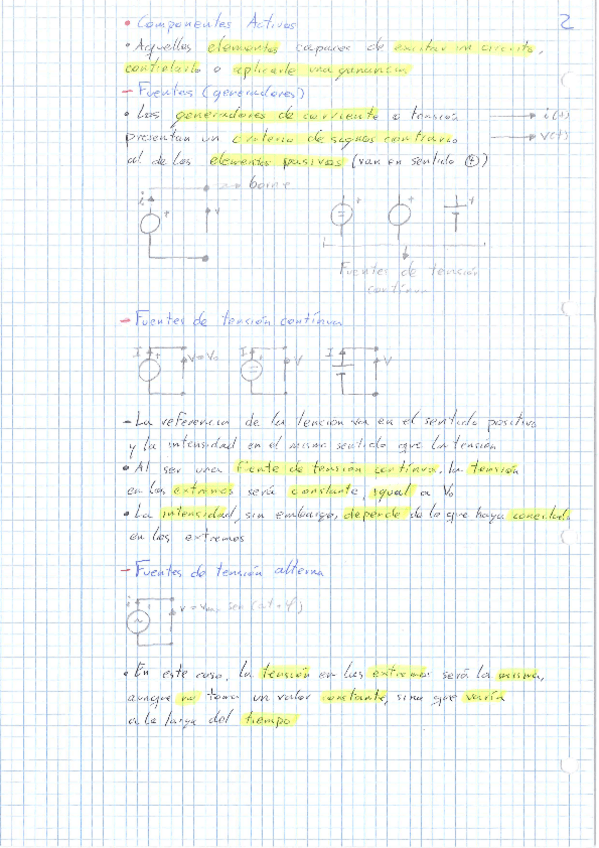 2
• Componentes Activos
• Aquellos elementos capaces de excitar un circuito,
controlarlo o aplicarle una ganancia
- Fuentes (generadores)
• Los generadores de corriente o tensión → i(t)
presentan un criterio de signos contrario → v(t)
al de los elementos pasivos (van en sentido +)
borne
i + v
= + + +
Fuentes de tensión
continua
- Fuentes de tensión continua
I + V=V₀ I + = V I V
- La referencia de la tensión va en el sentido positivo
y la intensidad en el mismo sentido que la tensión
• Al ser una fuente de tensión continua, la tensión
en los extremos será constante, igual a V₀
• La intensidad, sin embargo, depende de lo que haya conectado
en los extremos
- Fuentes de tensión alterna
i + ~ v = sen (ωt+φ)
• En este caso, la tensión en los extremos será la misma,
aunque no toma un valor constante, sino que varía
a lo largo del tiempo